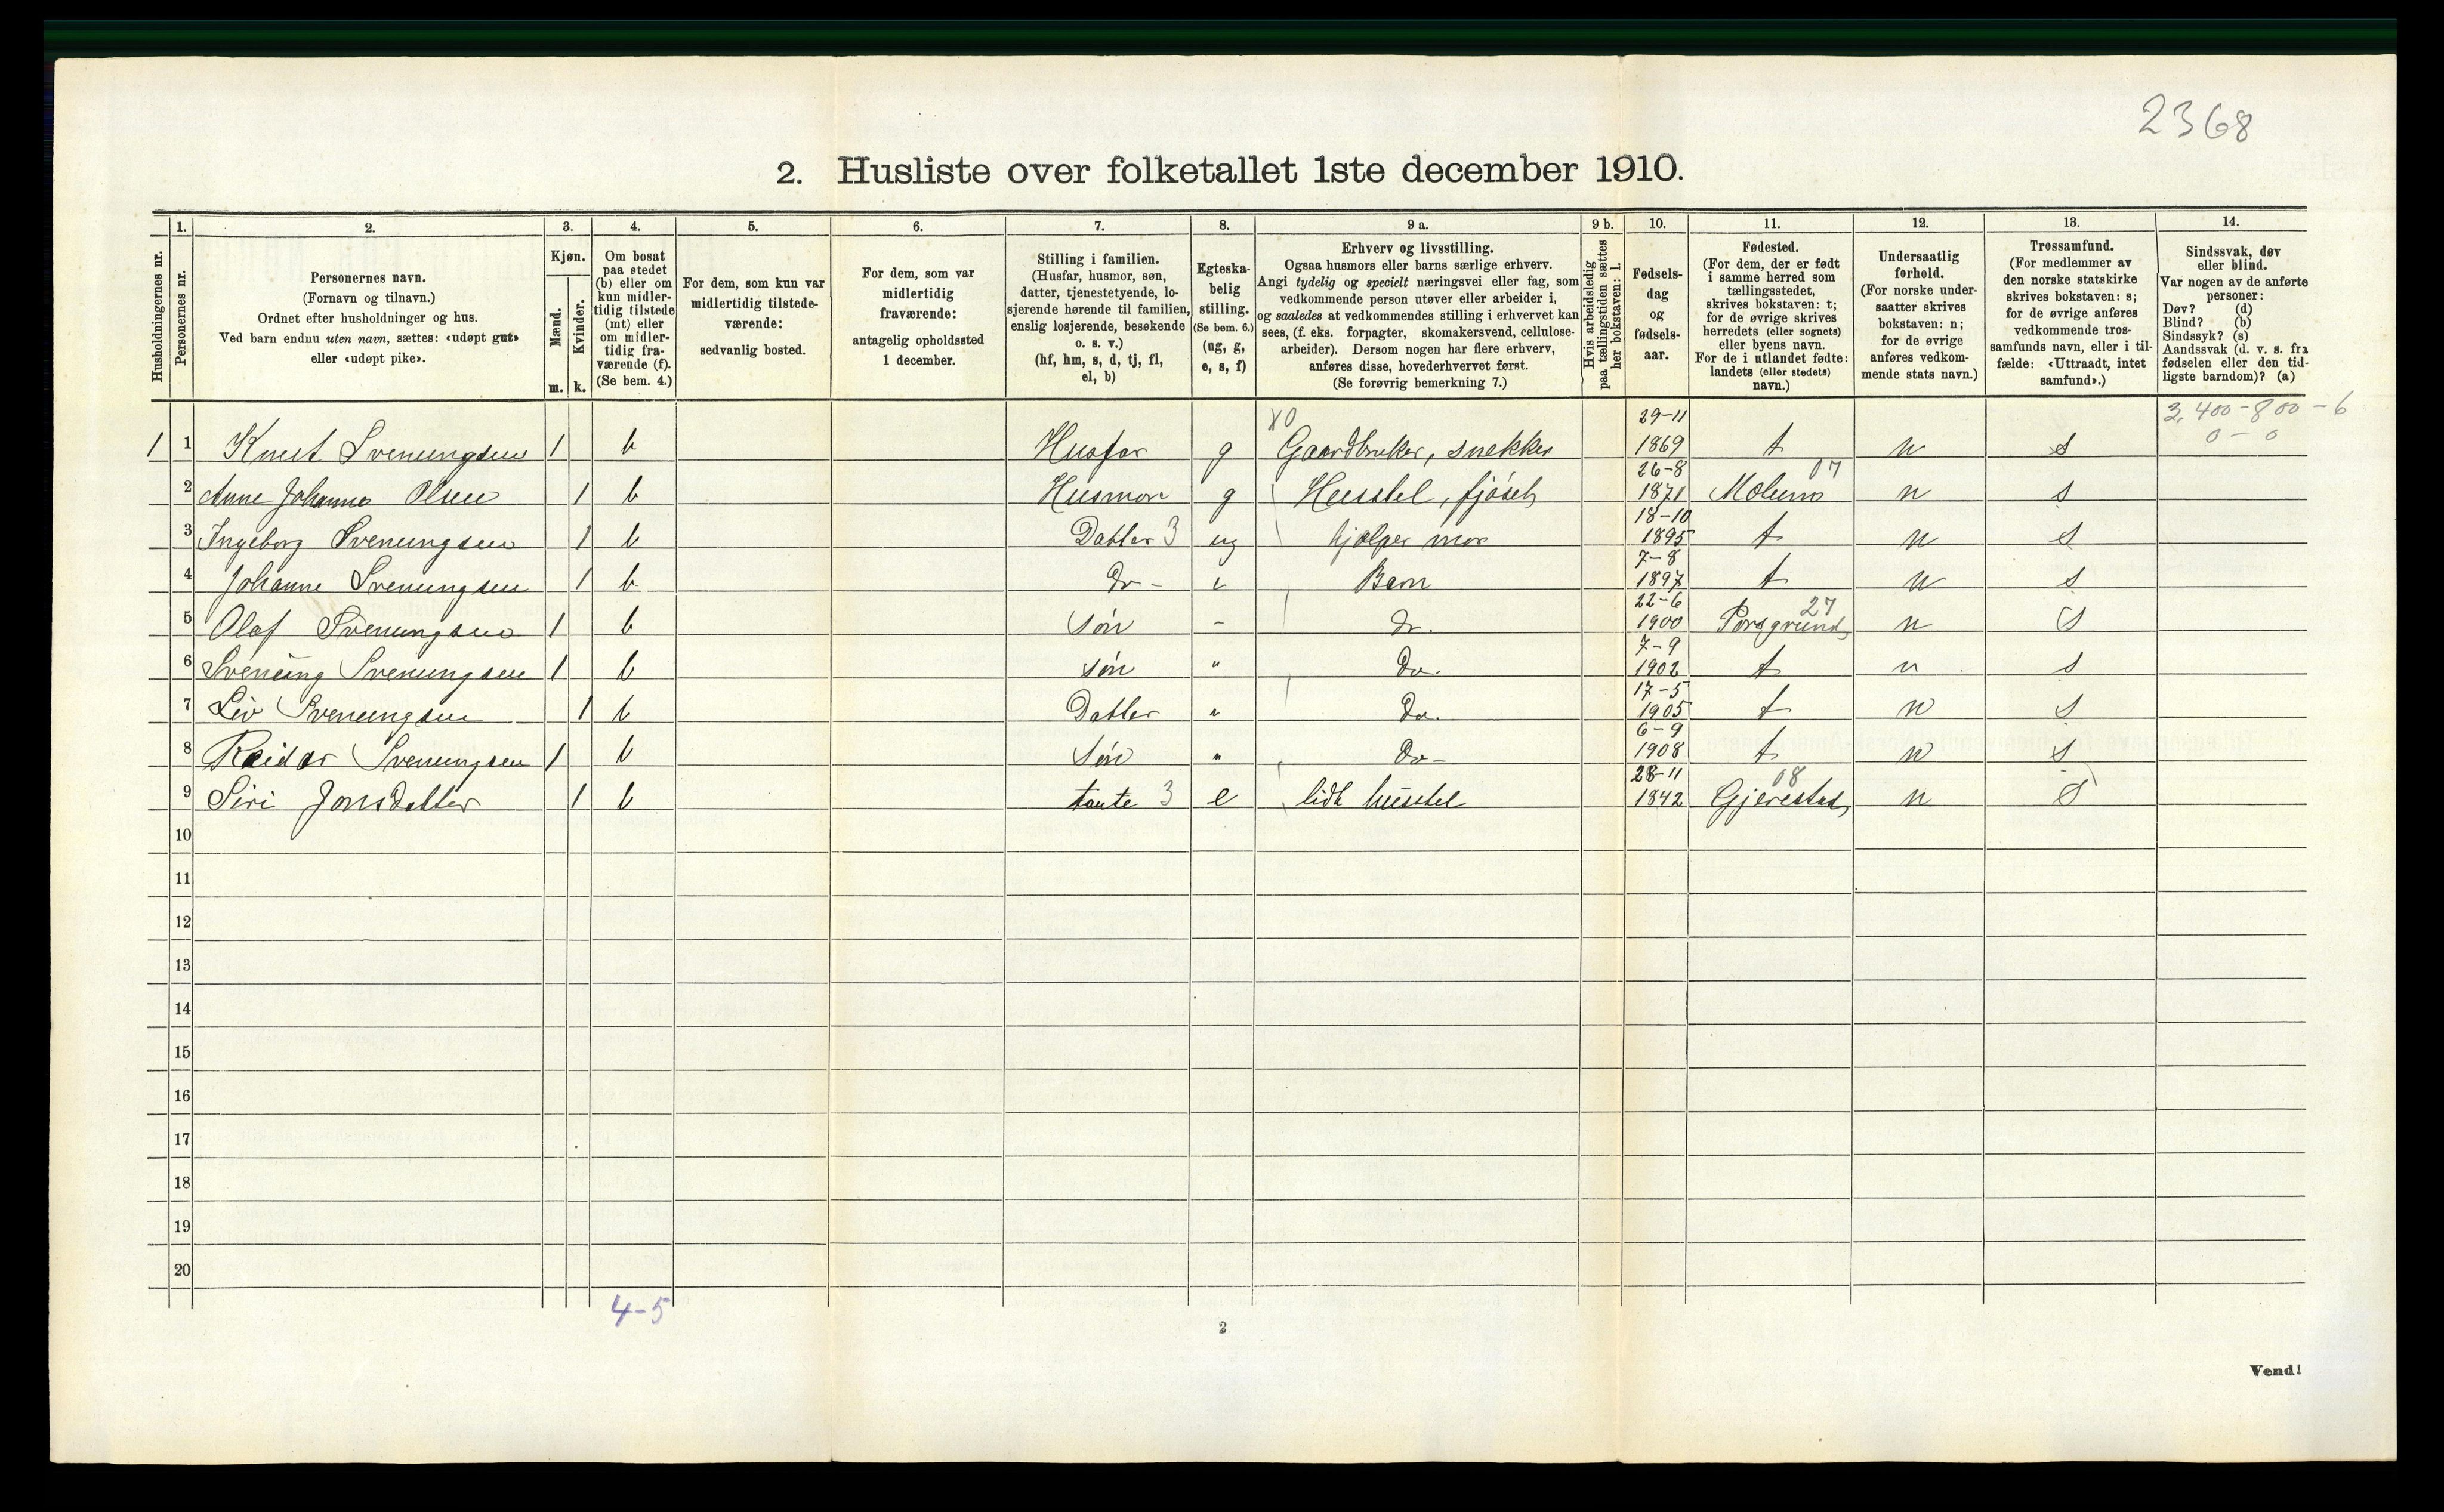 2368
2. Husliste over folketallet 1ste december 1910.
Husholdningernes nr.
1.
Personernes nr.
2.
Personernes navn.
(Fornavn og tilnavn.)
Ordnet efter husholdninger og hus.
Ved barn endnu uten navn, sættes: «udøpt gut»
eller «udøpt pike».
3.
Kjøn.
Mænd.
m.
Kvinder.
k.
4.
Om bosat
paa stedet
(b) eller om
kun midler-
tidig tilstede
(mt) eller
om midler-
tidig fra-
værende (f).
(Se bem. 4.)
5.
For dem, som kun var
midlertidig tilstede-
værende:
sedvanlig bosted.
6.
For dem, som var
midlertidig
fraværende:
antagelig opholdssted
1 december.
7.
Stilling i familien.
(Husfar, husmor, søn,
datter, tjenestetyende, lo-
sjerende hørende til familien,
enslig losjerende, besøkende
o. s. v.)
(hf, hm, s, d, tj, fl,
el, b)
8.
Egteska-
belig
stilling.
(Se bem. 6.)
(ug, g,
e, s, f)
9 a.
Erhverv og livsstilling.
Ogsaa husmors eller barns særlige erhverv.
Angi tydelig og specielt næringsvei eller fag, som
vedkommende person utøver eller arbeider i,
og saaledes at vedkommendes stilling i erhvervet kan
sees, (f. eks. forpagter, skomakersvend, cellulose-
arbeider). Dersom nogen har flere erhverv,
anføres disse, hovederhvervet først.
(Se forøvrig bemerkning 7.)
9 b.
Hvis arbeidsledig
paa tællingstiden sættes
her bokstaven: l.
10.
Fødsels-
dag
og
fødsels-
aar.
11.
Fødested.
(For dem, der er født
i samme herred som
tællingsstedet,
skrives bokstaven: t;
for de øvrige skrives
herredets (eller sognets)
eller byens navn.
For de i utlandet fødte:
landets (eller stedets)
navn.)
12.
Undersaatlig
forhold.
(For norske under-
saatter skrives
bokstaven: n;
for de øvrige
anføres vedkom-
mende stats navn.)
13.
Trossamfund.
(For medlemmer av
den norske statskirke
skrives bokstaven: s;
for de øvrige anføres
vedkommende tros-
samfunds navn, eller i til-
fælde: «Uttraadt, intet
samfund».)
14.
Sindssvak, døv
eller blind.
Var nogen av de anførte
personer:
Døv? (d)
Blind? (b)
Sindssyk? (s)
Aandssvak (d. v. s. fra
fødselen eller den tid-
ligste barndom)? (a)
X0 29-11 3,400-800-6
1 1 Knut Svenungsen 1 b Husfar g Gaardbruker, snekker 1869 t n s 0-0
26-8 07
2 Anne Johanne Olsen 1 b Husmor g Husstel, fjøsel 1871 Molum n s
18-10
3 Ingeborg Svenungsen 1 b Datter 3 ug hjelper mor 1895 t n s
7-8
4 Johanne Svenungsen 1 b Do - " Barn 1897 t n s
22-6 27
5 Olaf Svenungsen 1 b Søn - Do. 1900 Porsgrund n s
7-9
6 Svenung Svenungsen 1 b søn " Do. 1902 t n s
17-5
7 Liv Svenungsen 1 b Datter " Do. 1905 t n s
6-9
8 Reidar Svenungsen 1 b Søn " Do - 1908 t n s
28-11 08
9 Siri Jonsdatter 1 b tante 3 e lidt husstel 1842 Gjerestad n s
10
11
12
13
14
15
16
17
18
19
20
4-5
2
Vend!